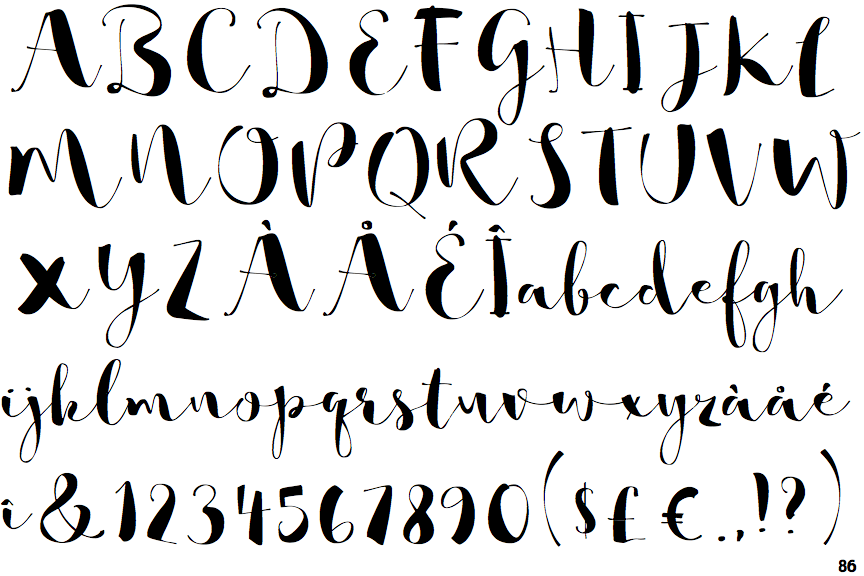 ABCDEFGHIJKL
MNOPQRSTUVW
XYZÀÅÉÎabcdefgh
ijklmnopqrstuvwxyzàåé
î&1234567890($£€.,!?)
86